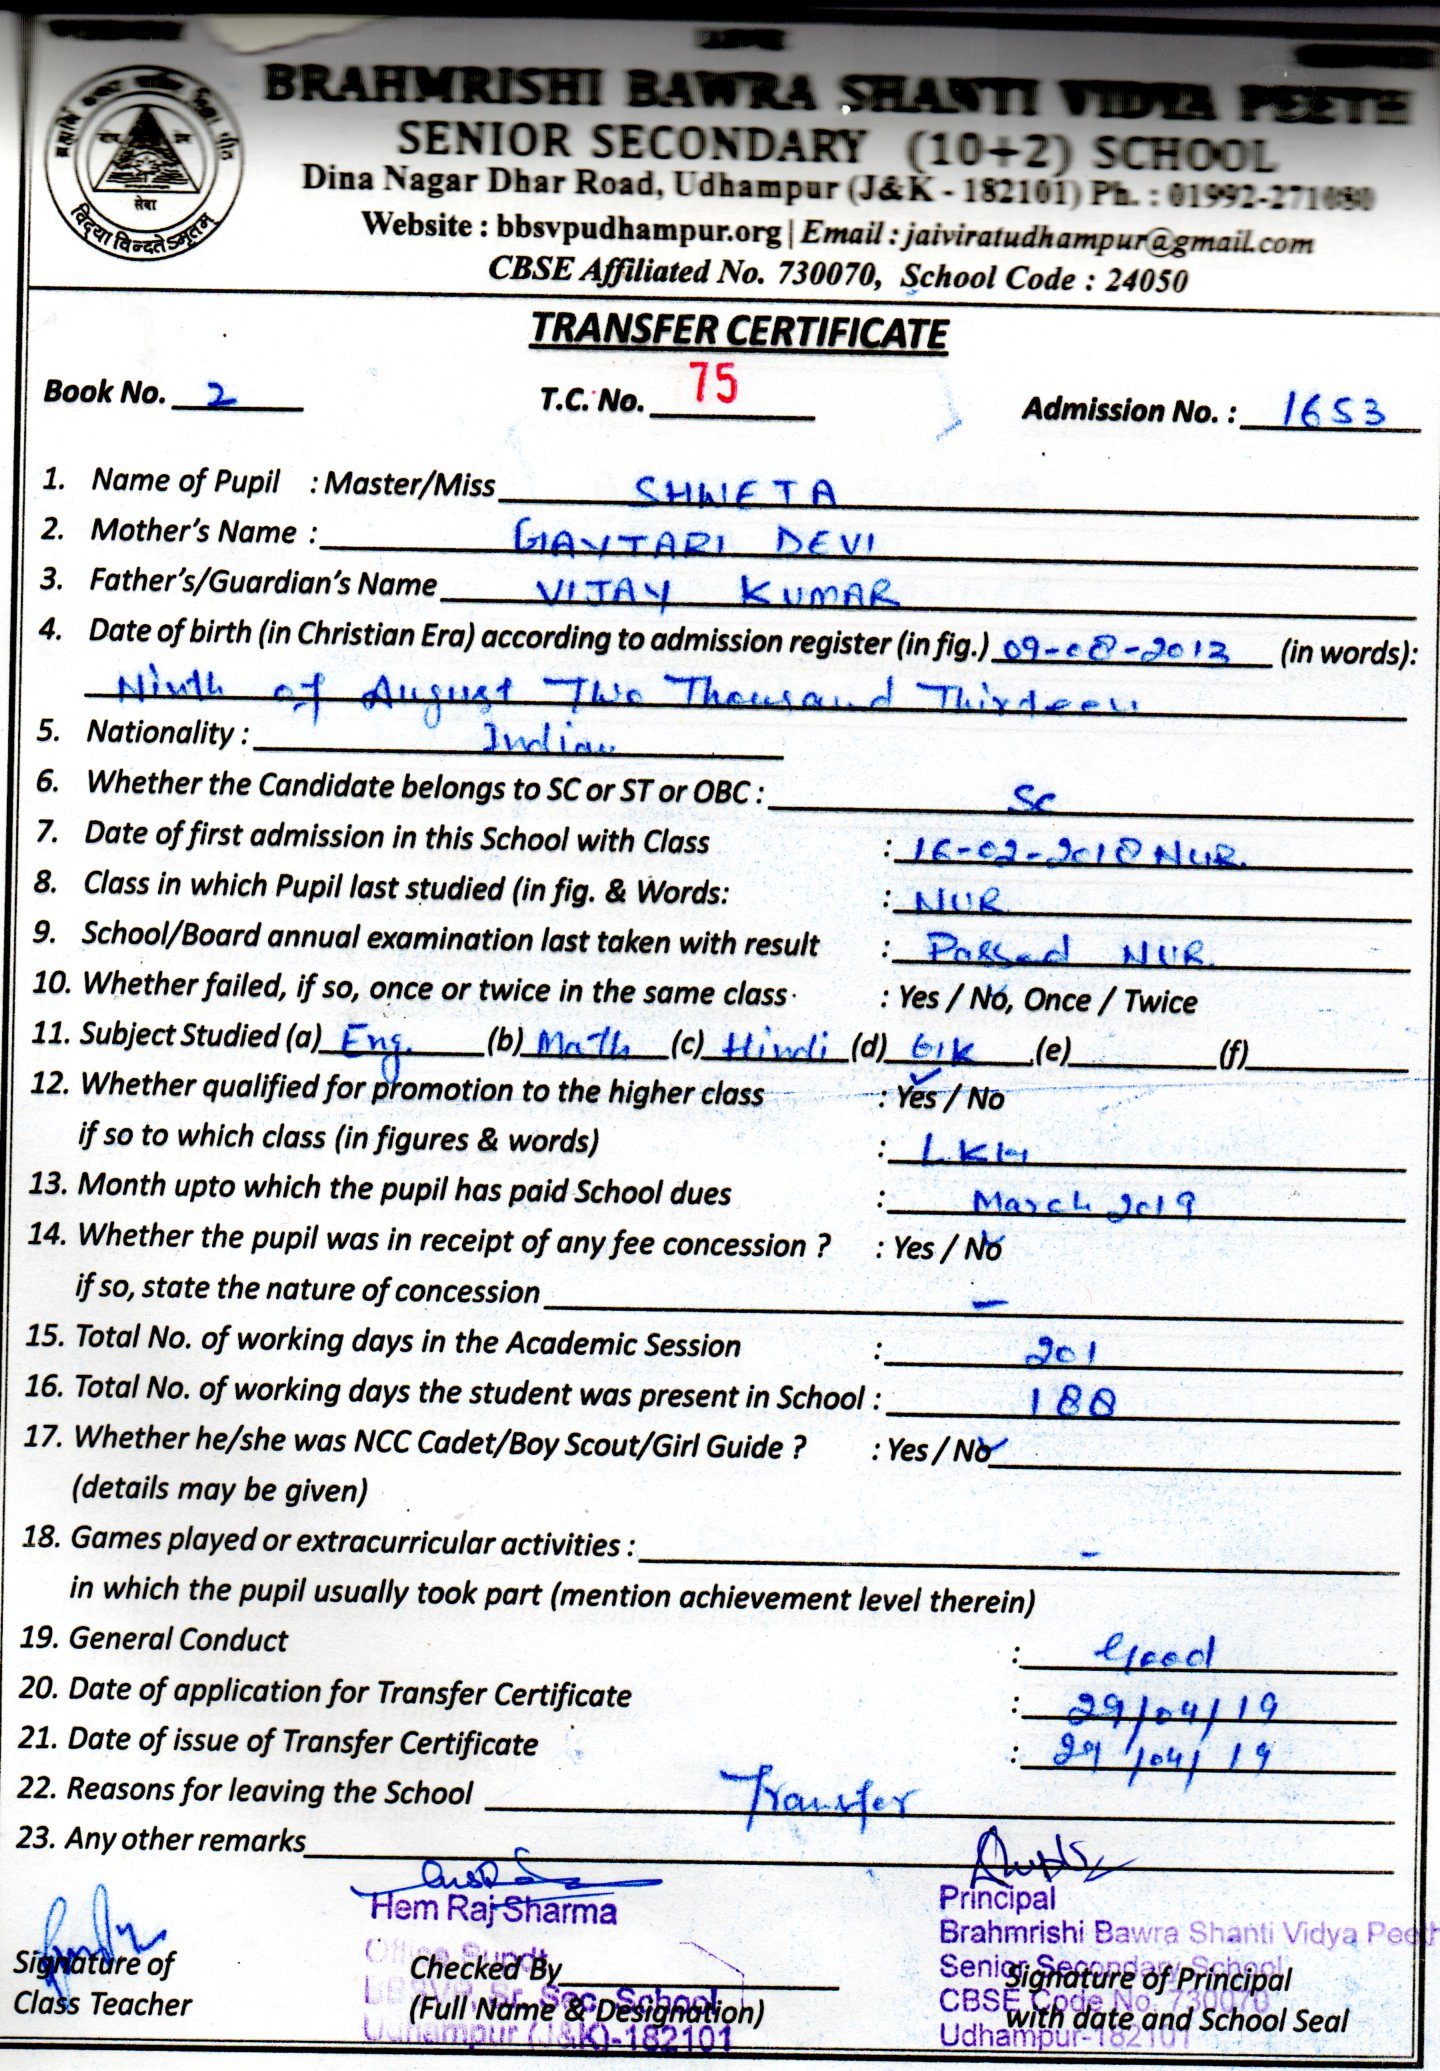 BRAHMRISHI BAWRA SHANTI VIDYA PEETH
SENIOR SECONDARY (10+2) SCHOOL
Dina Nagar Dhar Road, Udhampur (J&K - 182101) Ph. : 01992-271080
Website : bbsvpudhampur.org | Email : jaiviratudhampur@gmail.com
CBSE Affiliated No. 730070, School Code : 24050
सेवा
विद्या विन्दतेऽमृतम्
TRANSFER CERTIFICATE
Book No. 2 T.C. No. 75 Admission No. : 1653
1. Name of Pupil : Master/Miss SHWETA
2. Mother's Name : GAYTARI DEVI
3. Father's/Guardian's Name VIJAY KUMAR
4. Date of birth (in Christian Era) according to admission register (in fig.) 09-08-2013 (in words):
Ninth of August Two Thousand Thirteen
5. Nationality : Indian
6. Whether the Candidate belongs to SC or ST or OBC : SC
7. Date of first admission in this School with Class : 16-02-2018 NUR.
8. Class in which Pupil last studied (in fig. & Words: : NUR
9. School/Board annual examination last taken with result : Passed NUR.
10. Whether failed, if so, once or twice in the same class : Yes / No, Once / Twice
11. Subject Studied (a) Eng. (b) Math (c) Hindi (d) GK (e) (f)
12. Whether qualified for promotion to the higher class : Yes / No
if so to which class (in figures & words) : LKG
13. Month upto which the pupil has paid School dues : March 2019
14. Whether the pupil was in receipt of any fee concession ? : Yes / No
if so, state the nature of concession –
15. Total No. of working days in the Academic Session : 201
16. Total No. of working days the student was present in School : 188
17. Whether he/she was NCC Cadet/Boy Scout/Girl Guide ? : Yes / No
(details may be given)
18. Games played or extracurricular activities : -
in which the pupil usually took part (mention achievement level therein)
19. General Conduct : Good
20. Date of application for Transfer Certificate : 29/04/19
21. Date of issue of Transfer Certificate : 29/04/19
22. Reasons for leaving the School Transfer
23. Any other remarks
Hem Raj Sharma
Office Supdt.
Sr. Sec. School
Udhampur (J&K)-182101
Principal
Brahmrishi Bawra Shanti Vidya Peeth
Senior Secondary School
CBSE Code No. 730070
Udhampur-182101
Signature of
Class Teacher
Checked By
(Full Name & Designation)
Signature of Principal
with date and School Seal